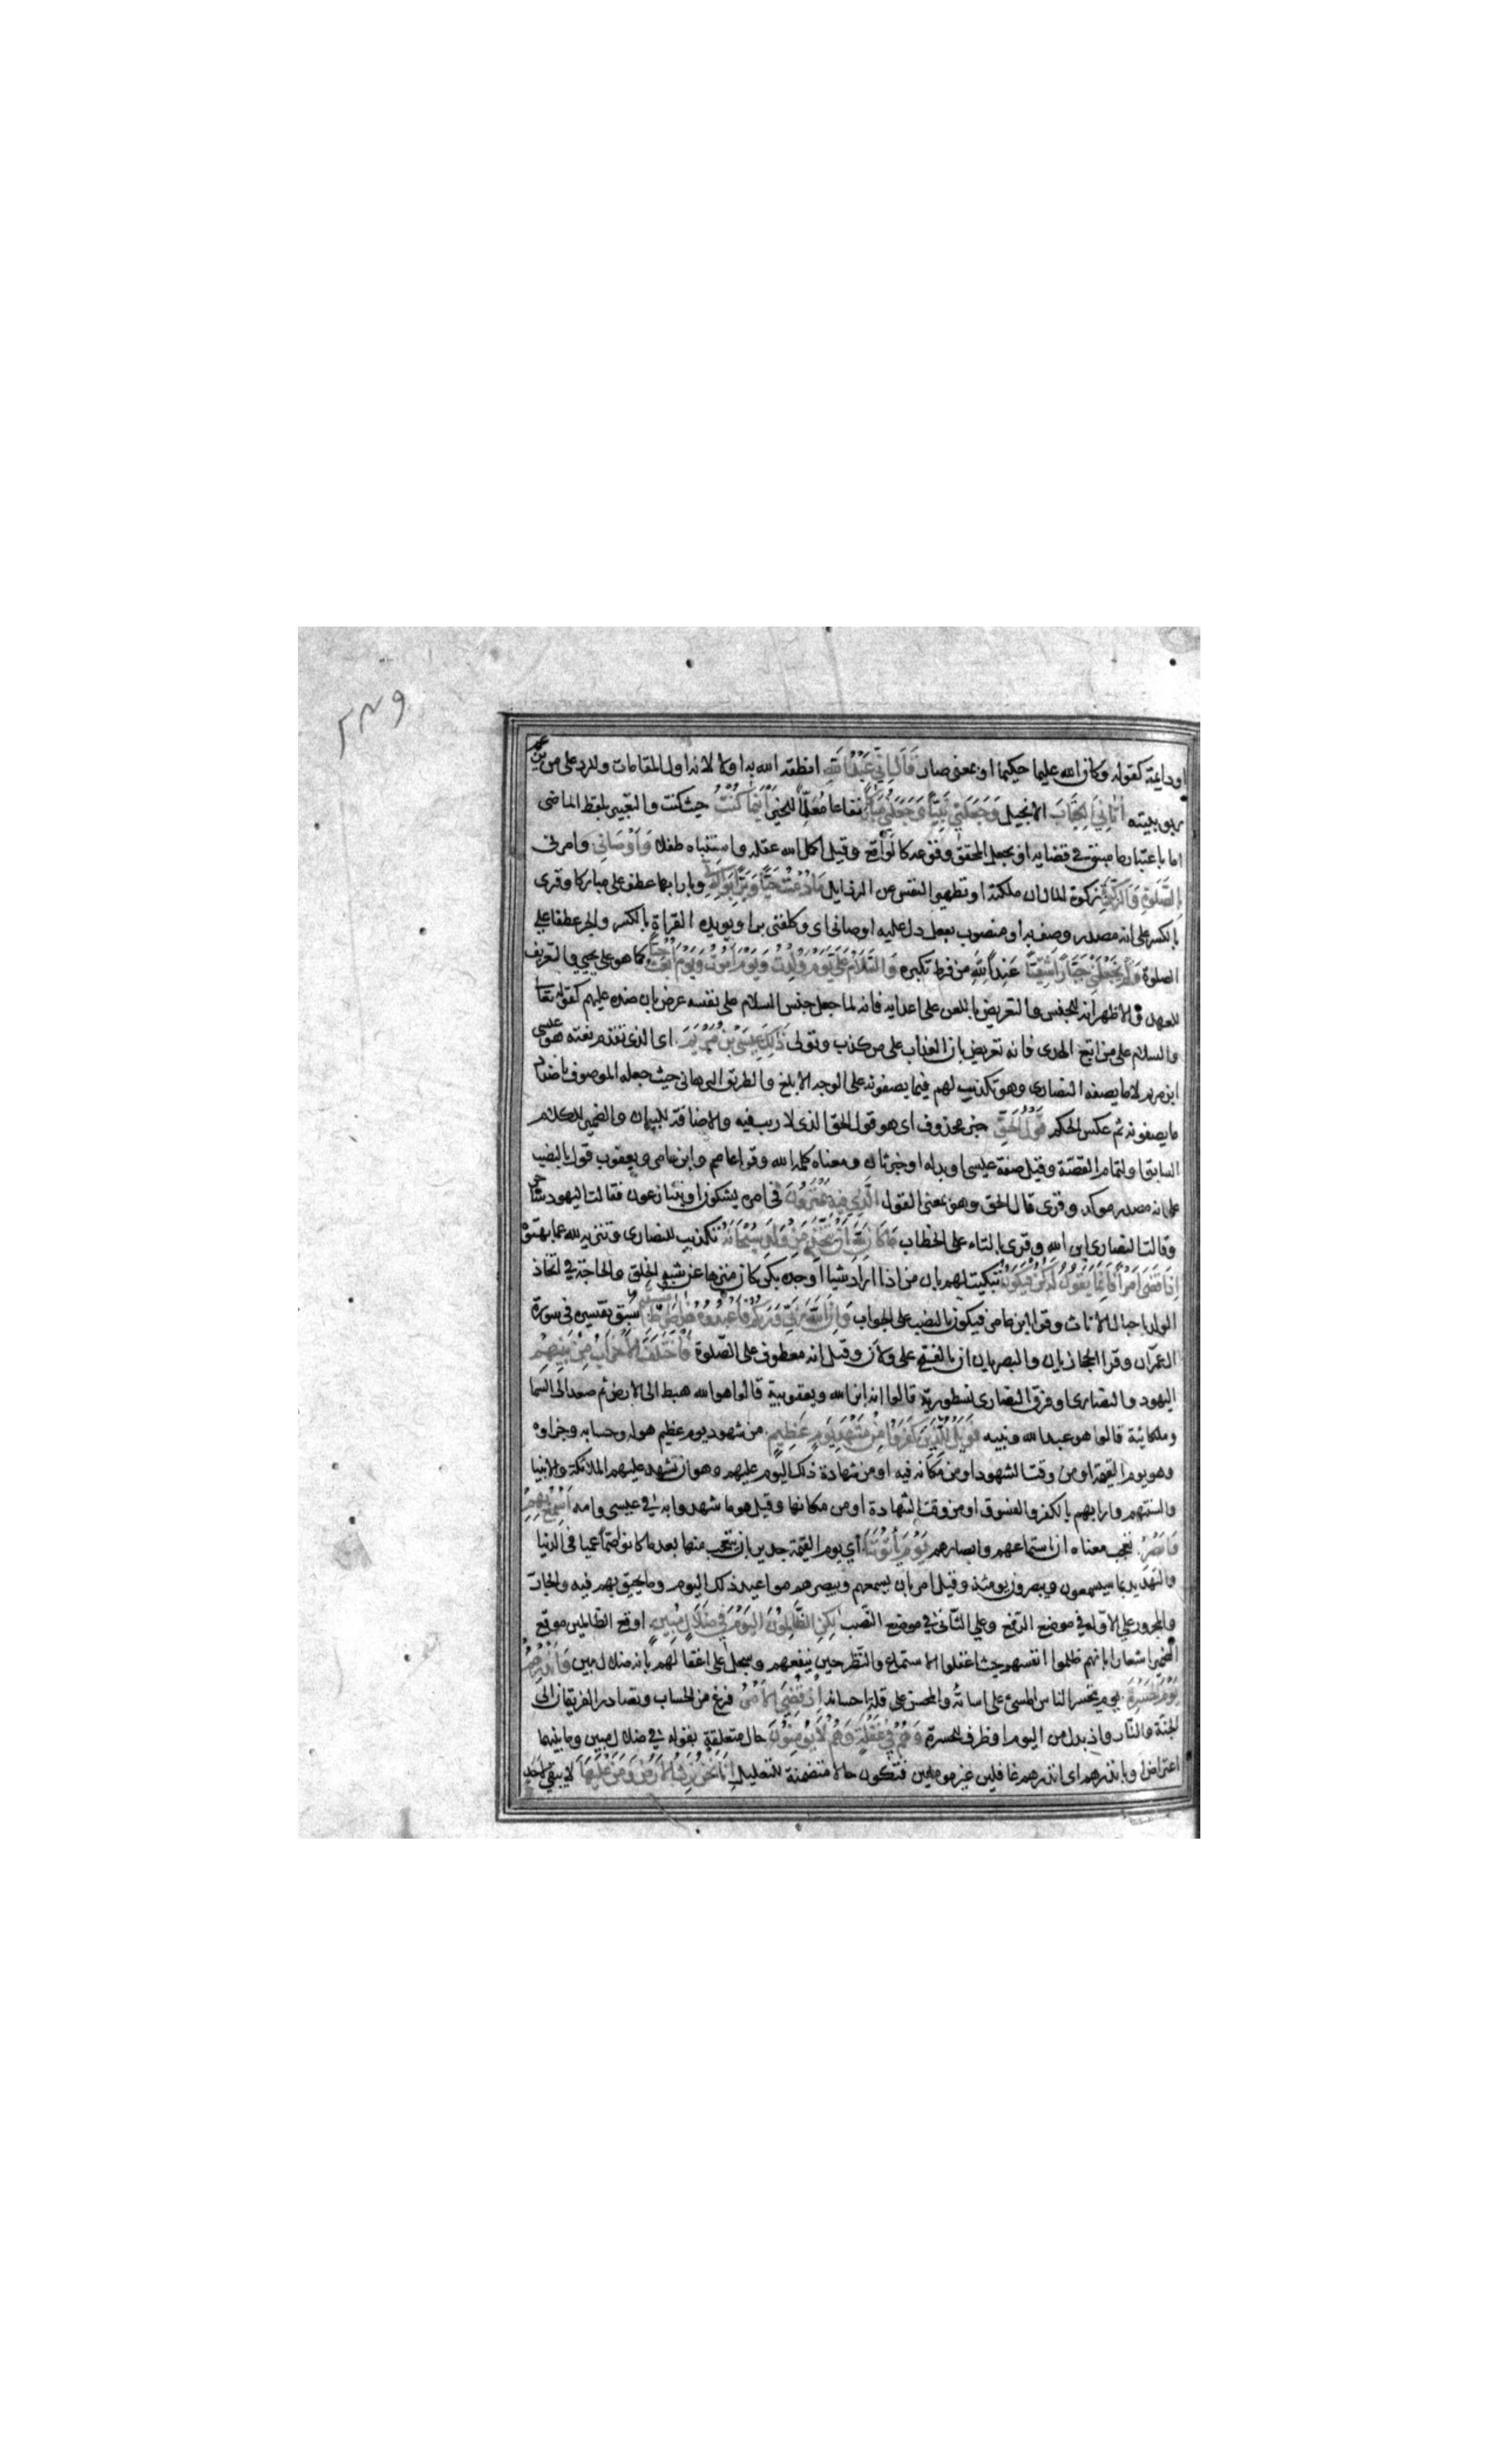 ٢٣٩
او دائمة كقوله وكان الله عليما حكيما او بمعنى صار قَالَ اِنِّي عَبْدُ اللّٰهِ انطقه الله به اولا لانه اول المقامات وللرد على من يزعم
ربوبيته اٰتَانِيَ الْكِتَابَ الانجيل وَجَعَلَنِي نَبِيًّا وَجَعَلَنِي مُبَارَكًا نفاعا مُعَلِّمًا للخير اَيْنَمَا كُنْتُ حيث كنت والتعبير بلفظ الماضي
اما باعتبار ما سبق في قضايه او بجعل المحقق وقوعه كالواقع وقيل اكمل الله عقله واستنباه طفلا وَاَوْصَانِي وامرني
بِالصَّلٰوةِ وَالزَّكٰوةِ زكوة المال ان ملكته او تطهير النفس عن الرذايل مَا دُمْتُ حَيًّا وَبَرًّا بِوَالِدَتِي وبارا بها عطف على مباركا وقرى
بالكسر على انه مصدر وصف به او منصوب بفعل دل عليه اوصاني اى وكلفني برا ويويده القراة بالكسر والجر عطفا على
الصلوة وَلَمْ يَجْعَلْنِي جَبَّارًا شَقِيًّا عند الله من فرط تكبره وَالسَّلَامُ عَلَيَّ يَوْمَ وُلِدْتُ وَيَوْمَ اَمُوتُ وَيَوْمَ اُبْعَثُ حَيًّا كما هو على يحيى والتعريف
للعهد والاظهر انه للجنس والتعريض باللعن على اعدايه فانه لما جعل جنس السلام على نفسه عرض بان ضده عليهم كقوله تعالى
والسلام على من اتبع الهدى فانه تعريض بان العذاب على من كذب وتولى ذٰلِكَ عِيسَى بْنُ مَرْيَمَ اى الذى تقدم نعته هو عيسى
ابن مريم لا ما يصفه النصارى وهو تكذيب لهم فيما يصفونه على الوجه الابلغ والطريق البرهاني حيث جعله الموصوف باضداد
ما يصفونه ثم عكس الحكم قَوْلُ الْحَقِّ خبر محذوف اى هو قول الحق الذى لا ريب فيه والاضافة للبيان والضمير للكلام
السابق او لتمام القصة وقيل صفة عيسى او بدله او خبر ثان ومعناه كلمة الله وقرا عاصم وابن عامر ويعقوب قول بالنصب
على انه مصدر موكد وقرى قال الحق وهو بمعنى القول الَّذِي فِيهِ يَمْتَرُونَ في امره يشكون او يتنازعون فقالت اليهود ساحر
وقالت النصارى ابن الله وقرى بالتاء على الخطاب مَا كَانَ لِلّٰهِ اَنْ يَتَّخِذَ مِنْ وَلَدٍ سُبْحَانَهُ تكذيب للنصارى وتنزيه لله عما بهتوه
اِذَا قَضٰى اَمْرًا فَاِنَّمَا يَقُولُ لَهُ كُنْ فَيَكُونُ تبكيت لهم بان من اذا اراد شيا اوجده بكن كان منزها عن شبه الخلق والحاجة في اتخاذ
الولد باحبال الاناث وقرا ابن عامر فيكون بالنصب على الجواب وَاِنَّ اللّٰهَ رَبِّي وَرَبُّكُمْ فَاعْبُدُوهُ هٰذَا صِرَاطٌ مُسْتَقِيمٌ سبق تفسيره في سورة
ال عمران وقرا الحجازيان والبصريان ان بالفتح على ولان وقيل انه معطوف على الصّلوة فَاخْتَلَفَ الْاَحْزَابُ مِنْ بَيْنِهِمْ
اليهود والنصارى او فرق النصارى نسطورية قالوا انه ابن الله ويعقوبية قالوا هو الله هبط الى الارض ثم صعد الى السما
وملكائية قالوا هو عبد الله ونبيه فَوَيْلٌ لِلَّذِينَ كَفَرُوا مِنْ مَشْهَدِ يَوْمٍ عَظِيمٍ من شهود يوم عظيم هوله وحسابه وجزاوه
وهو يوم القيمة او من وقت الشهود او من مكانه فيه او من شهادة ذلك اليوم عليهم وهو ان تشهد عليهم الملائكة والانبيا
والسنتهم وارابهم بالكفر والفسوق او من وقت الشهادة او من مكانها وقيل هو ما شهدوا به في عيسى وامه اَسْمِعْ بِهِمْ
وَاَبْصِرْ تعجب معناه ان استماعهم وابصارهم يَوْمَ يَأْتُونَنَا أي يوم القيمة جدير بان يتعجب منها بعد ما كانوا صمّا عميا في الدنيا
والتهديد بما سيسمعون ويبصرون يومئذ وقيل امر بان يسمعهم ويبصرهم مواعيد ذلك اليوم وما يحيق بهم فيه والجار
والمجرور على الاول في موضع الرفع وعلى الثاني في موضع النصب لٰكِنِ الظَّالِمُونَ الْيَوْمَ فِي ضَلَالٍ مُبِينٍ اوقع الظالمين موقع
الضمير اشعارا بانهم ظلموا انفسهم حيث اغفلوا الاستماع والنظر حين ينفعهم وسجل على اغفالهم بانه ضلال مبين وَاَنْذِرْهُمْ
يَوْمَ الْحَسْرَةِ يوم يتحسر الناس المسئ على اساته والمحسن على قلة احسانه اِذْ قُضِيَ الْاَمْرُ فرغ من الحساب وتصادر الفريقان الى
الجنة والنّار واذ بدل من اليوم او ظرف للحسرة وَهُمْ فِي غَفْلَةٍ وَهُمْ لَا يُؤْمِنُونَ حال متعلقة بقوله في ضلال مبين وما بينهما
اعتراض او بانذرهم اى انذرهم غافلين غير مومنين فتكون حالا متضمنة للتعليل اِنَّا نَحْنُ نَرِثُ الْاَرْضَ وَمَنْ عَلَيْهَا لا يبقى لاحد